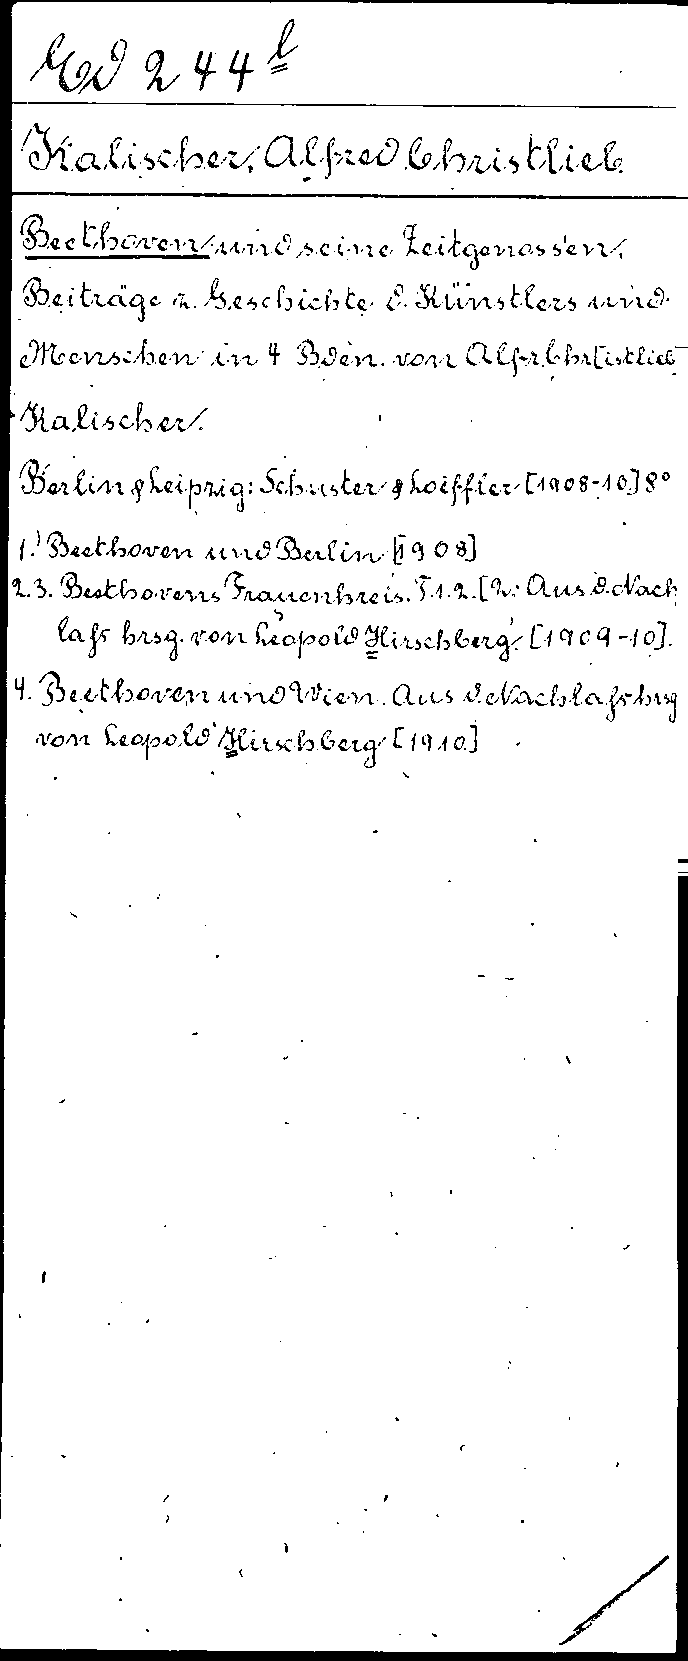 Ed 244 l
Kalischer, Alfred Christlieb
Beethoven und seine Zeitgenossen.
Beiträge z. Geschichte d. Künstlers und
Menschen in 4 Bden. von Alfr. Chr[istlieb
Kalischer.
Berlin & Leipzig: Schuster & Loeffler [1908-10] 8°
1. Beethoven und Berlin [1908]
2.3. Beethovens Frauenkreis. T.1.2. [2: Aus d. Nach
laß hrsg. von Leopold Hirschberg. [1909-10].
4. Beethoven und Wien. Aus d. Nachlaß hrsg
von Leopold Hirschberg [1910]